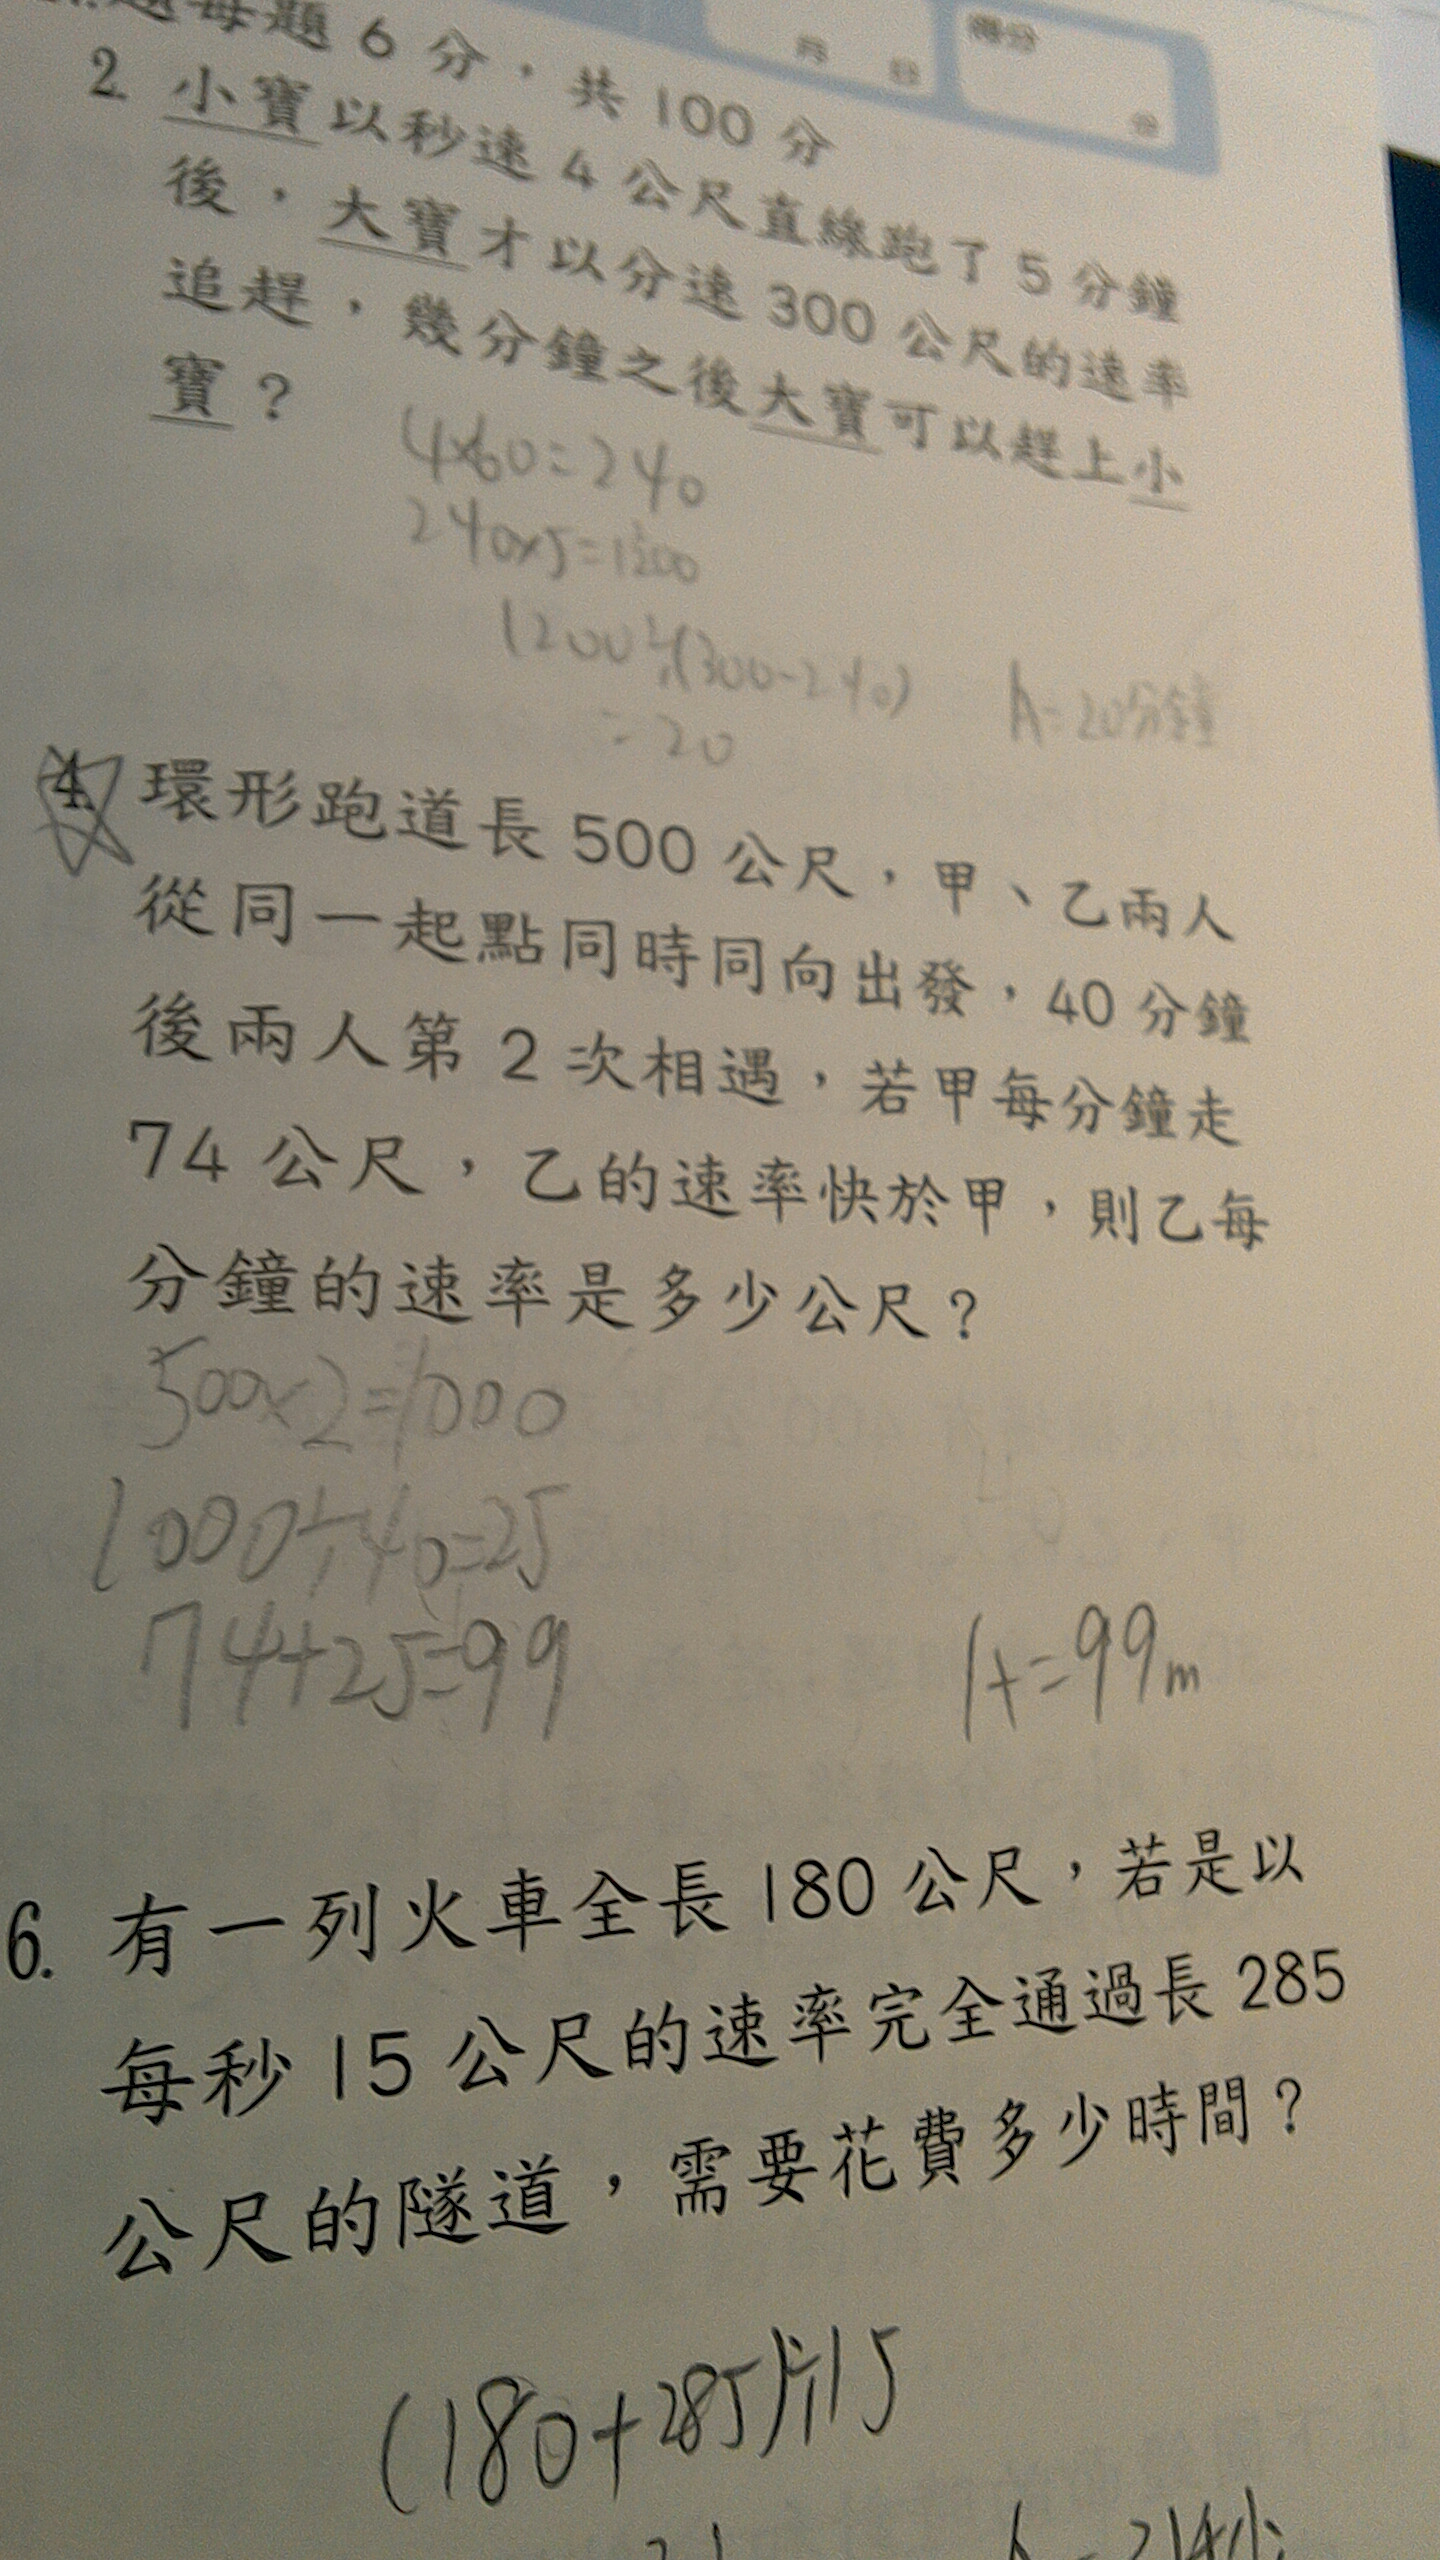 題每題 6 分，共 100 分
月 日
得分
分
2. 小寶以秒速 4 公尺直線跑了 5 分鐘
後，大寶才以分速 300 公尺的速率
追趕，幾分鐘之後大寶可以趕上小
寶？
4×60=240
240×5=1200
1200÷(300-240)
=20
A=20分鐘
4. 環形跑道長 500 公尺，甲、乙兩人
從同一起點同時同向出發，40 分鐘
後兩人第 2 次相遇，若甲每分鐘走
74 公尺，乙的速率快於甲，則乙每
分鐘的速率是多少公尺？
500×2=1000
1000÷40=25
74+25=99
A=99m
6. 有一列火車全長 180 公尺，若是以
每秒 15 公尺的速率完全通過長 285
公尺的隧道，需要花費多少時間？
(180+285)÷15